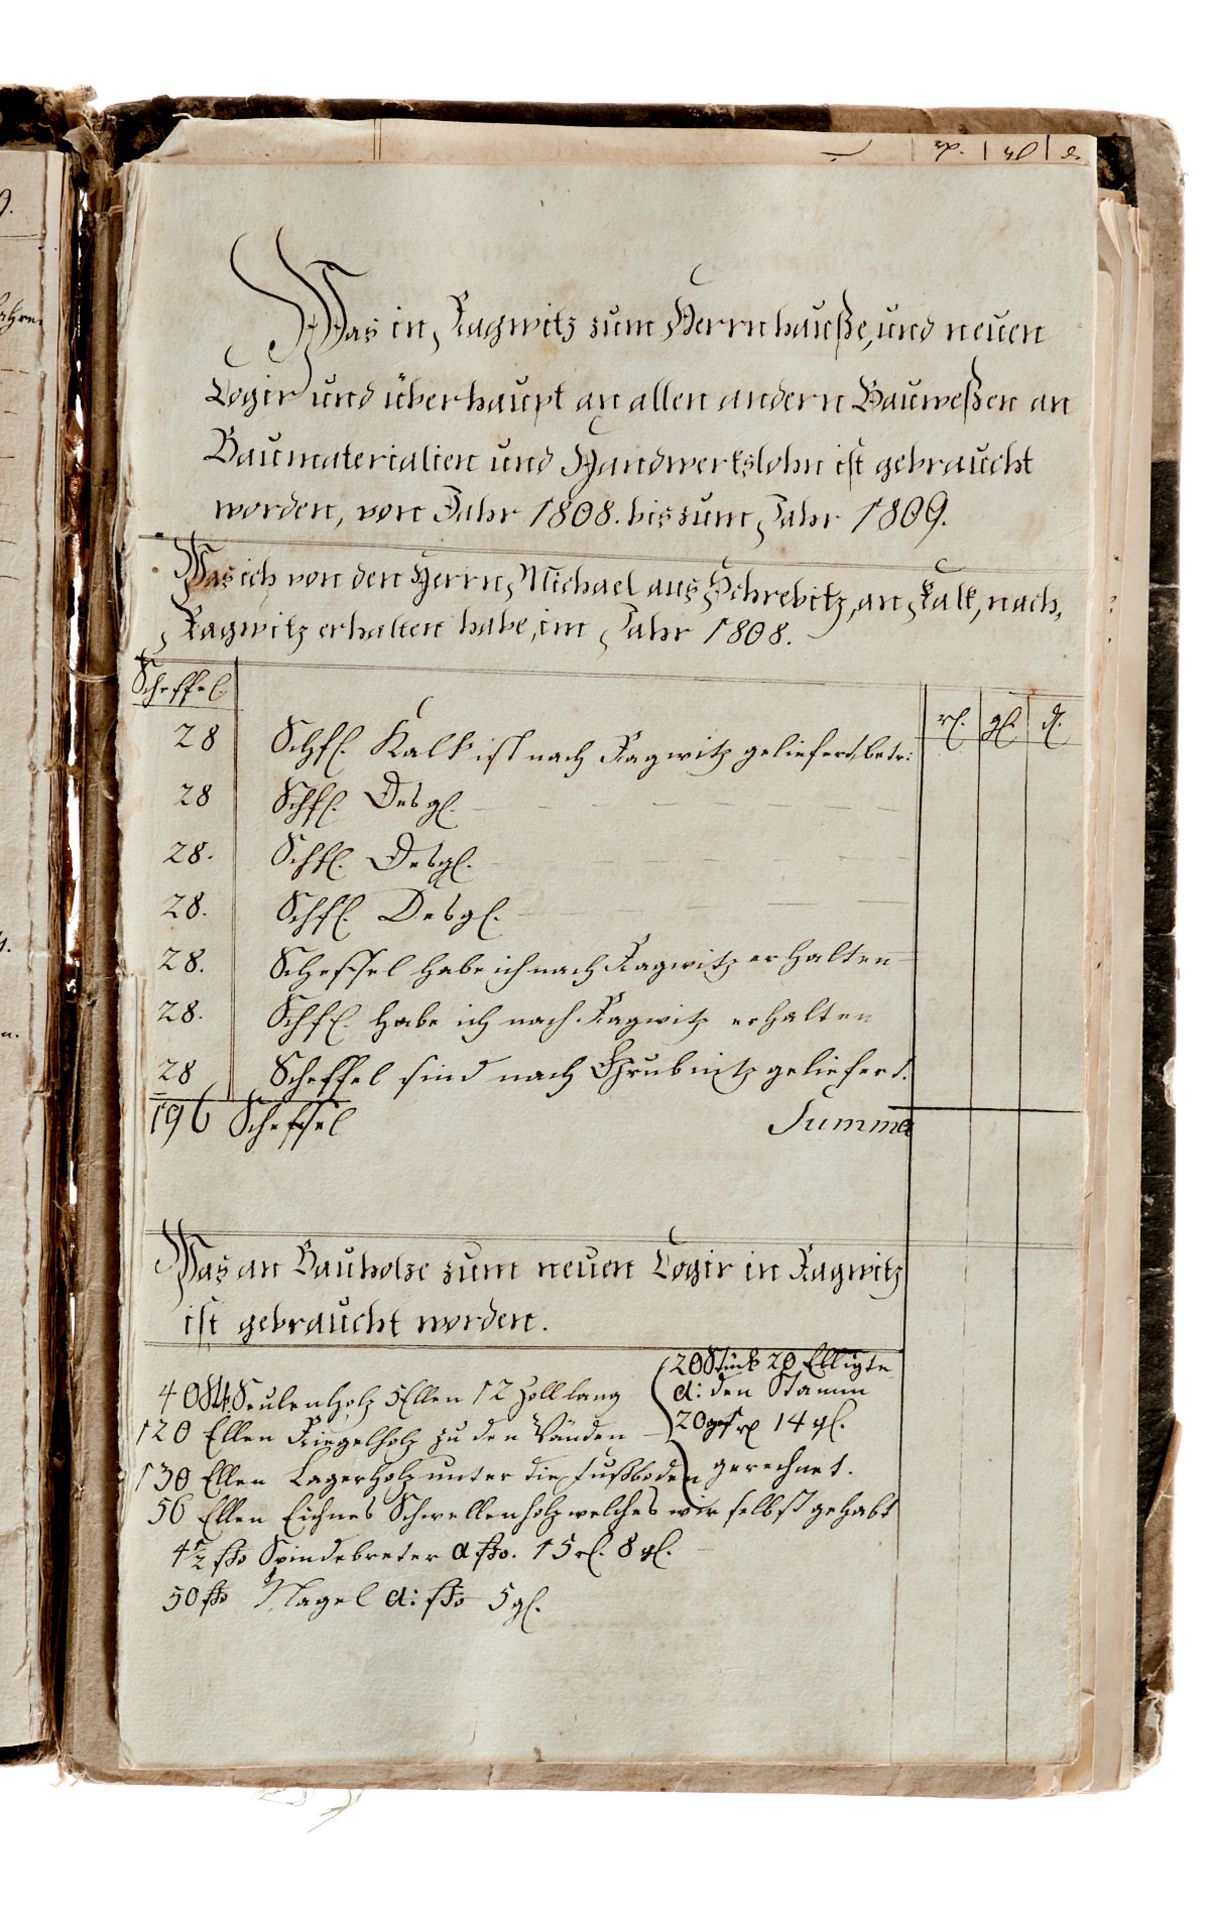 Was in Ragwitz zum Herrnhauße, und neuen
Logir und überhaupt an allen andern Bauweßen an
Baumaterialien und Handwerkslohn ist gebraucht
worden, von Jahr 1808. bis zum Jahr 1809.
Was ich von den Herrn Michael aus Schrebitz, an Kalk, nach
Ragwitz erhalten habe, im Jahr 1808.
Scheffel.
rl. gl. d.
28 Schfl. Kalk ist nach Ragwitz geliefert, betr:
28 Schfl. Desgl.
28. Schfl. Desgl.
28. Schfl. Desgl.
28. Scheffel habe ich nach Ragwitz erhalten
28. Schfl. habe ich nach Ragwitz erhalten
28 Scheffel sind nach Grubnitz geliefert.
196 Scheffel Summa
Was an Bauholze zum neuen Logir in Ragwitz
ist gebraucht worden.
20 Stück 20 Elligte
40 Stk. Seulenholz 5 Ellen 12 Zoll lang d: den Stamm
120 Ellen Riegelholz zu den Wänden 20 14 gl.
130 Ellen Lagerholz unter die Fußboden gerechnet.
56 Ellen Eichnes Schwellenholz welches wir selbst gehabt
4½ ßo Spindebreter a ßo. 15 rl. 8 gl.
50 ßo Nagel a: ßo 5 gl.